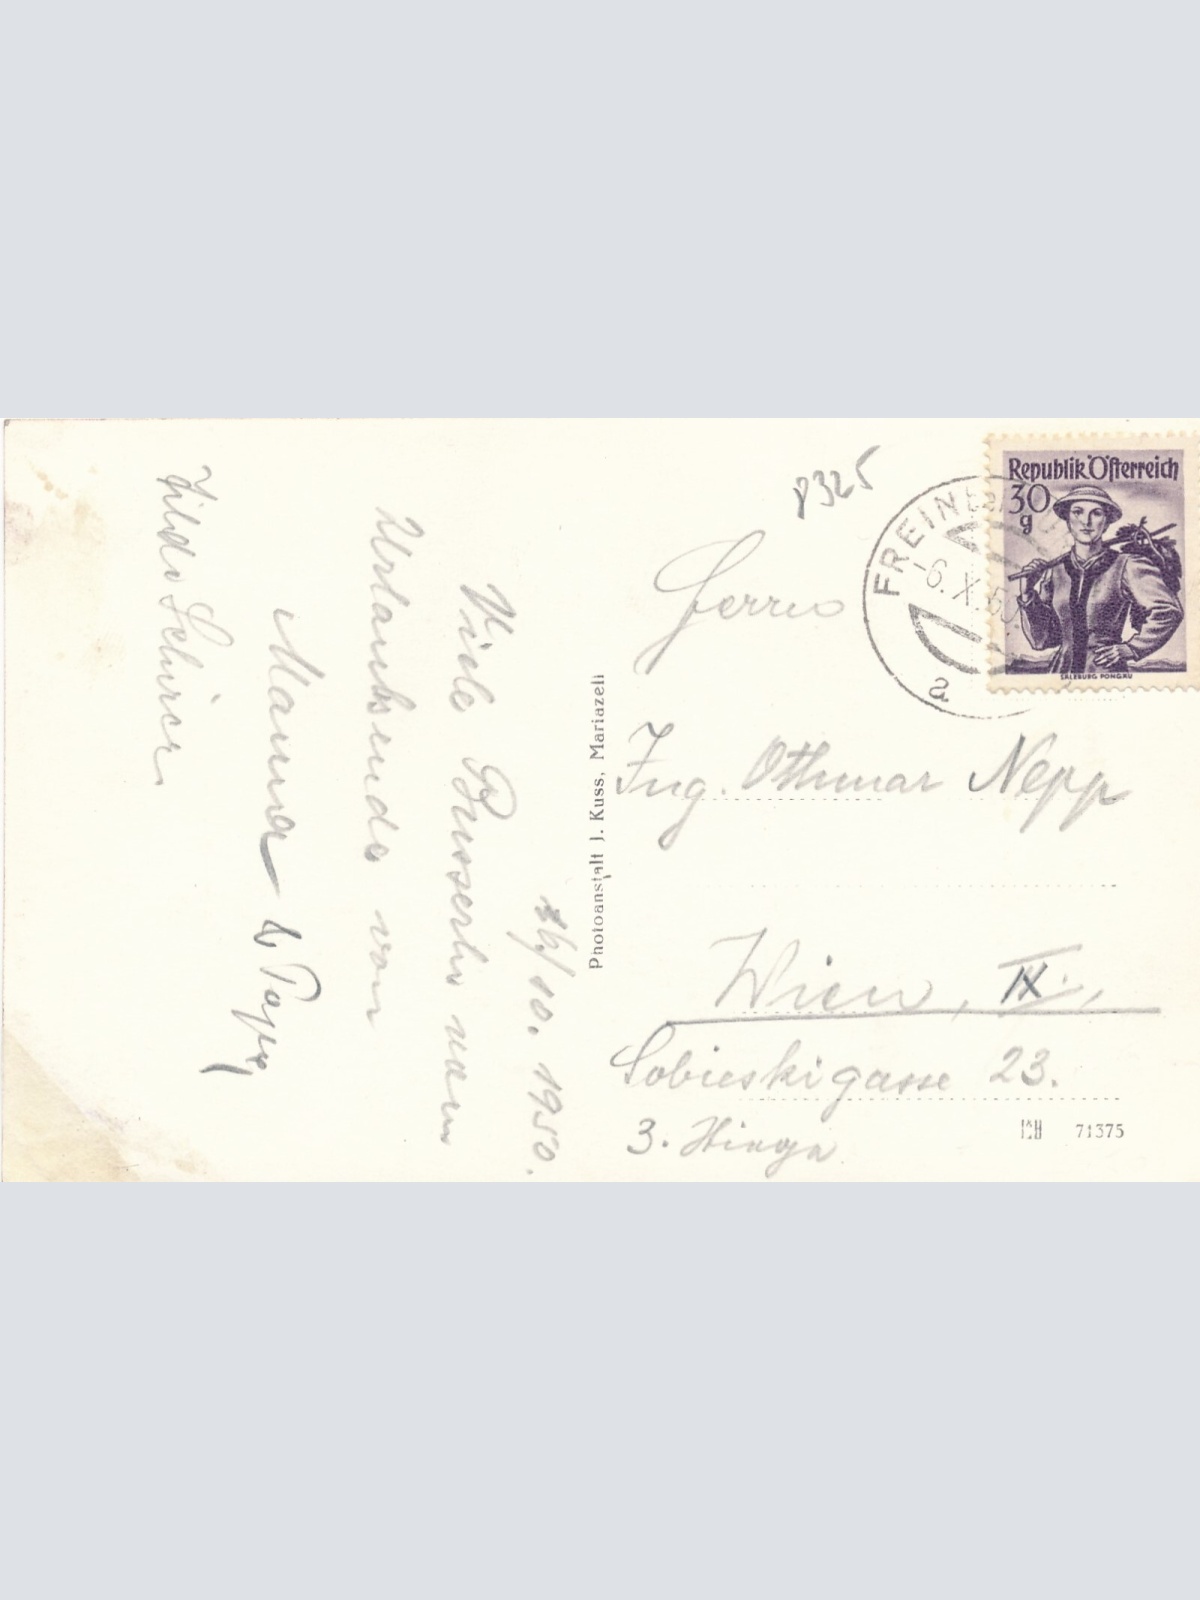 6/10. 1950.
Viele Busserln vom
Urlaubsende von
Mama & Papa
8325
Republik Österreich
30
g
SALZBURG PONGAU
FREIN
-6.X.50
a
Herrn
Ing. Othmar Nepp
Wien, IX.,
Sobieskigasse 23.
3. Stiege
Photoanstalt J. Kuss, Mariazell
71375